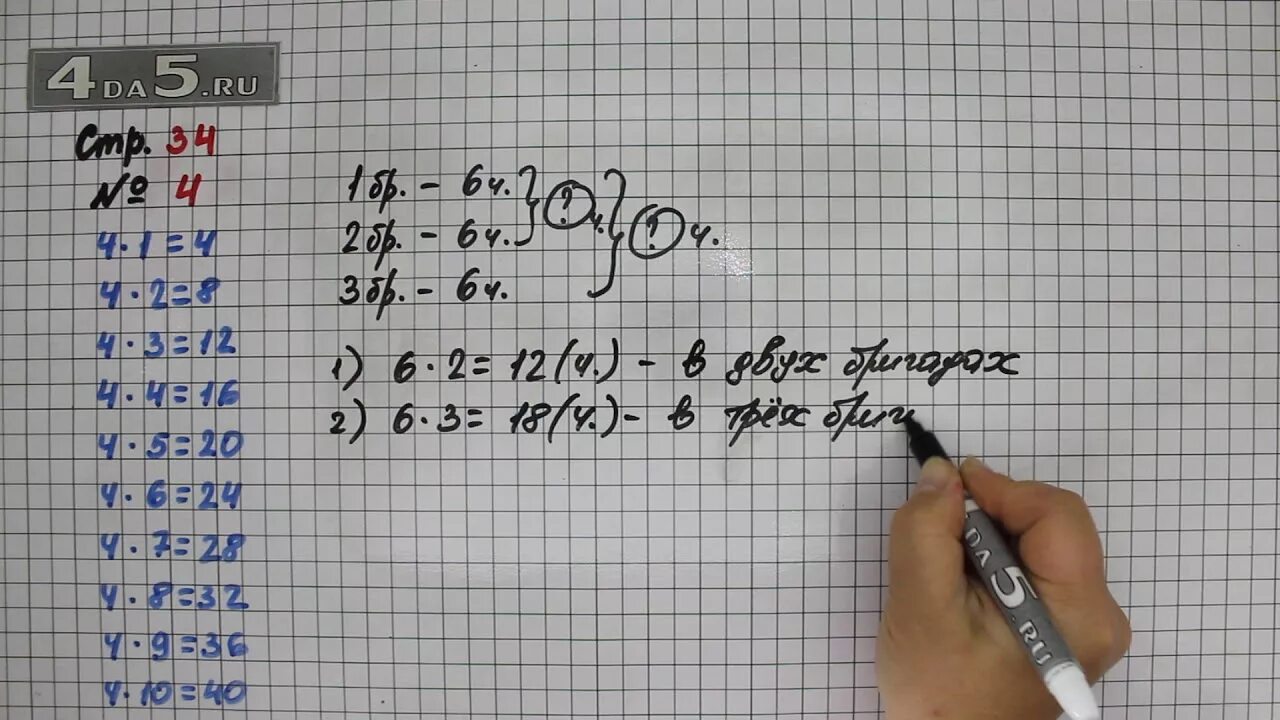 4DA5.RU
Стр. 34
№ 4
4·1=4
4·2=8
4·3=12
4·4=16
4·5=20
4·6=24
4·7=28
4·8=32
4·9=36
4·10=40
1бр. - 6ч. } ? ч. } ? ч.
2бр. - 6ч.
3бр. - 6ч.
1) 6·2=12(ч.) - в двух бригадах
2) 6·3=18(ч.) - в трёх бриг
4DA5.RU